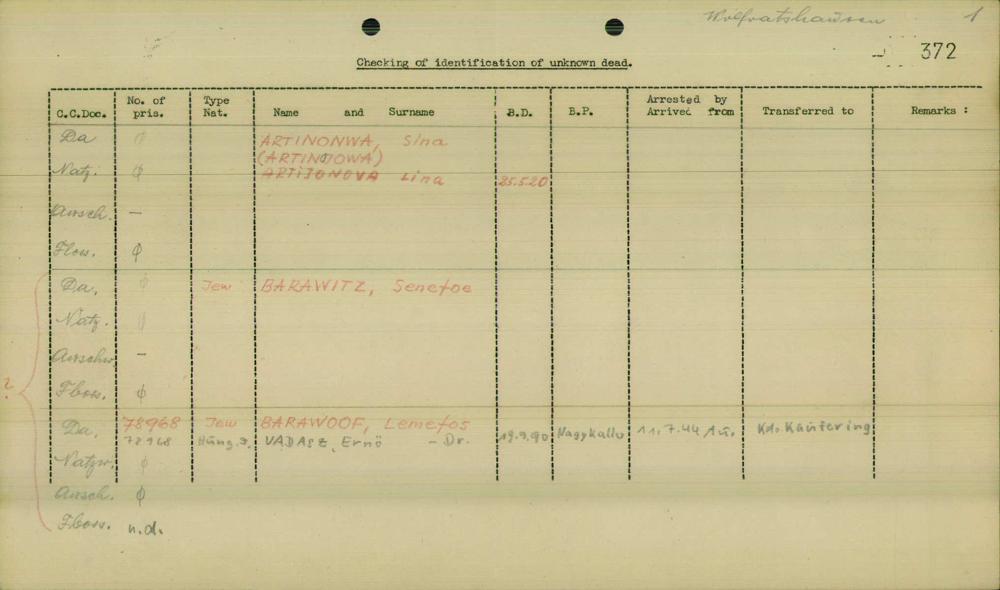 Wolfratshausen 1
372
Checking of identification of unknown dead.
C.C.Doc. No. of pris. Type Nat. Name and Surname B.D. B.P. Arrested by Arrived from Transferred to Remarks :
Da ϕ ARTINONWA, Sina
(ARTINJOWA)
Natz. ϕ ARTIJONOVA Lina 25.5.20
Ausch. —
Floss. ϕ
Da, ϕ Jew BARAWITZ, Senefoe
Natz. ϕ
Auschw —
Floss. ϕ
?
Da, 78968 Jew BARAWOOF, Lemefos
78968 Hung.J. VADASZ, Ernö - Dr. 19.9.90 Nagykallo 11.7.44 Au. Kd. Kaufering
Natzw. ϕ
Ausch. ϕ
Floss. n.d.